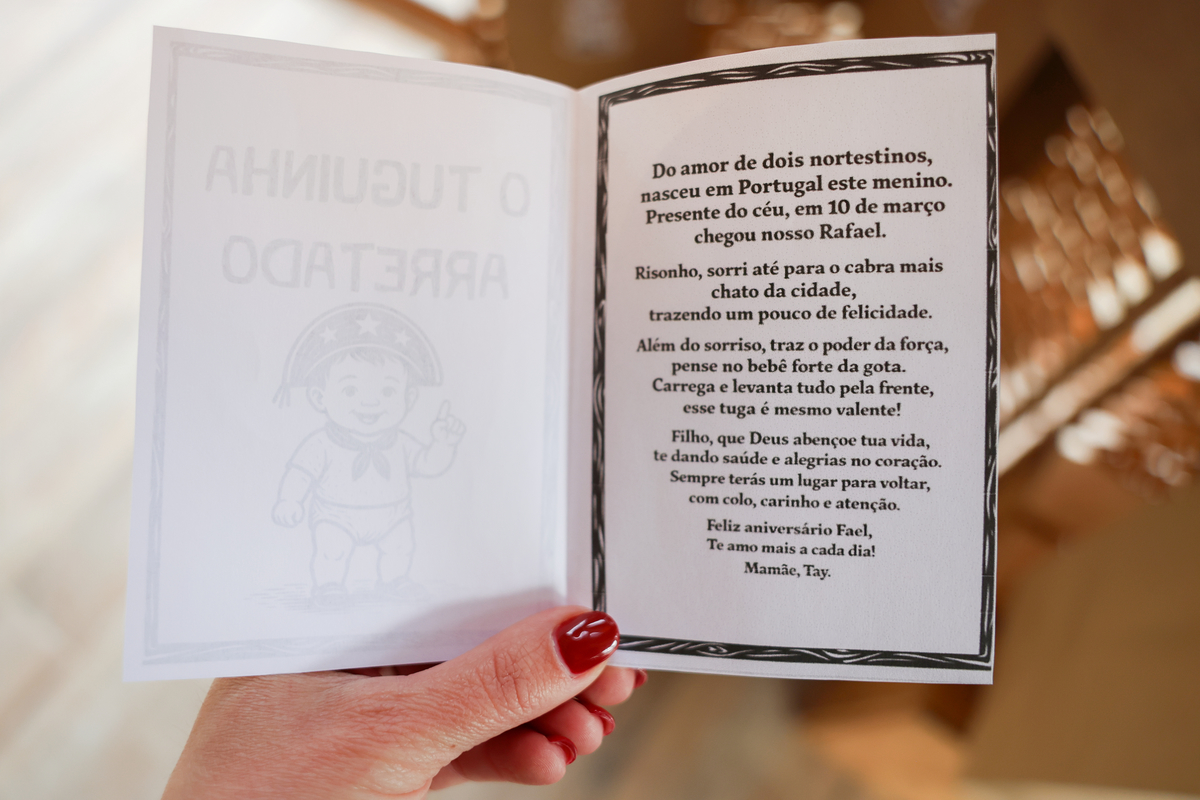 O TUGUINHA
ARRETADO
Do amor de dois nortestinos,
nasceu em Portugal este menino.
Presente do céu, em 10 de março
chegou nosso Rafael.
Risonho, sorri até para o cabra mais
chato da cidade,
trazendo um pouco de felicidade.
Além do sorriso, traz o poder da força,
pense no bebê forte da gota.
Carrega e levanta tudo pela frente,
esse tuga é mesmo valente!
Filho, que Deus abençoe tua vida,
te dando saúde e alegrias no coração.
Sempre terás um lugar para voltar,
com colo, carinho e atenção.
Feliz aniversário Fael,
Te amo mais a cada dia!
Mamãe, Tay.